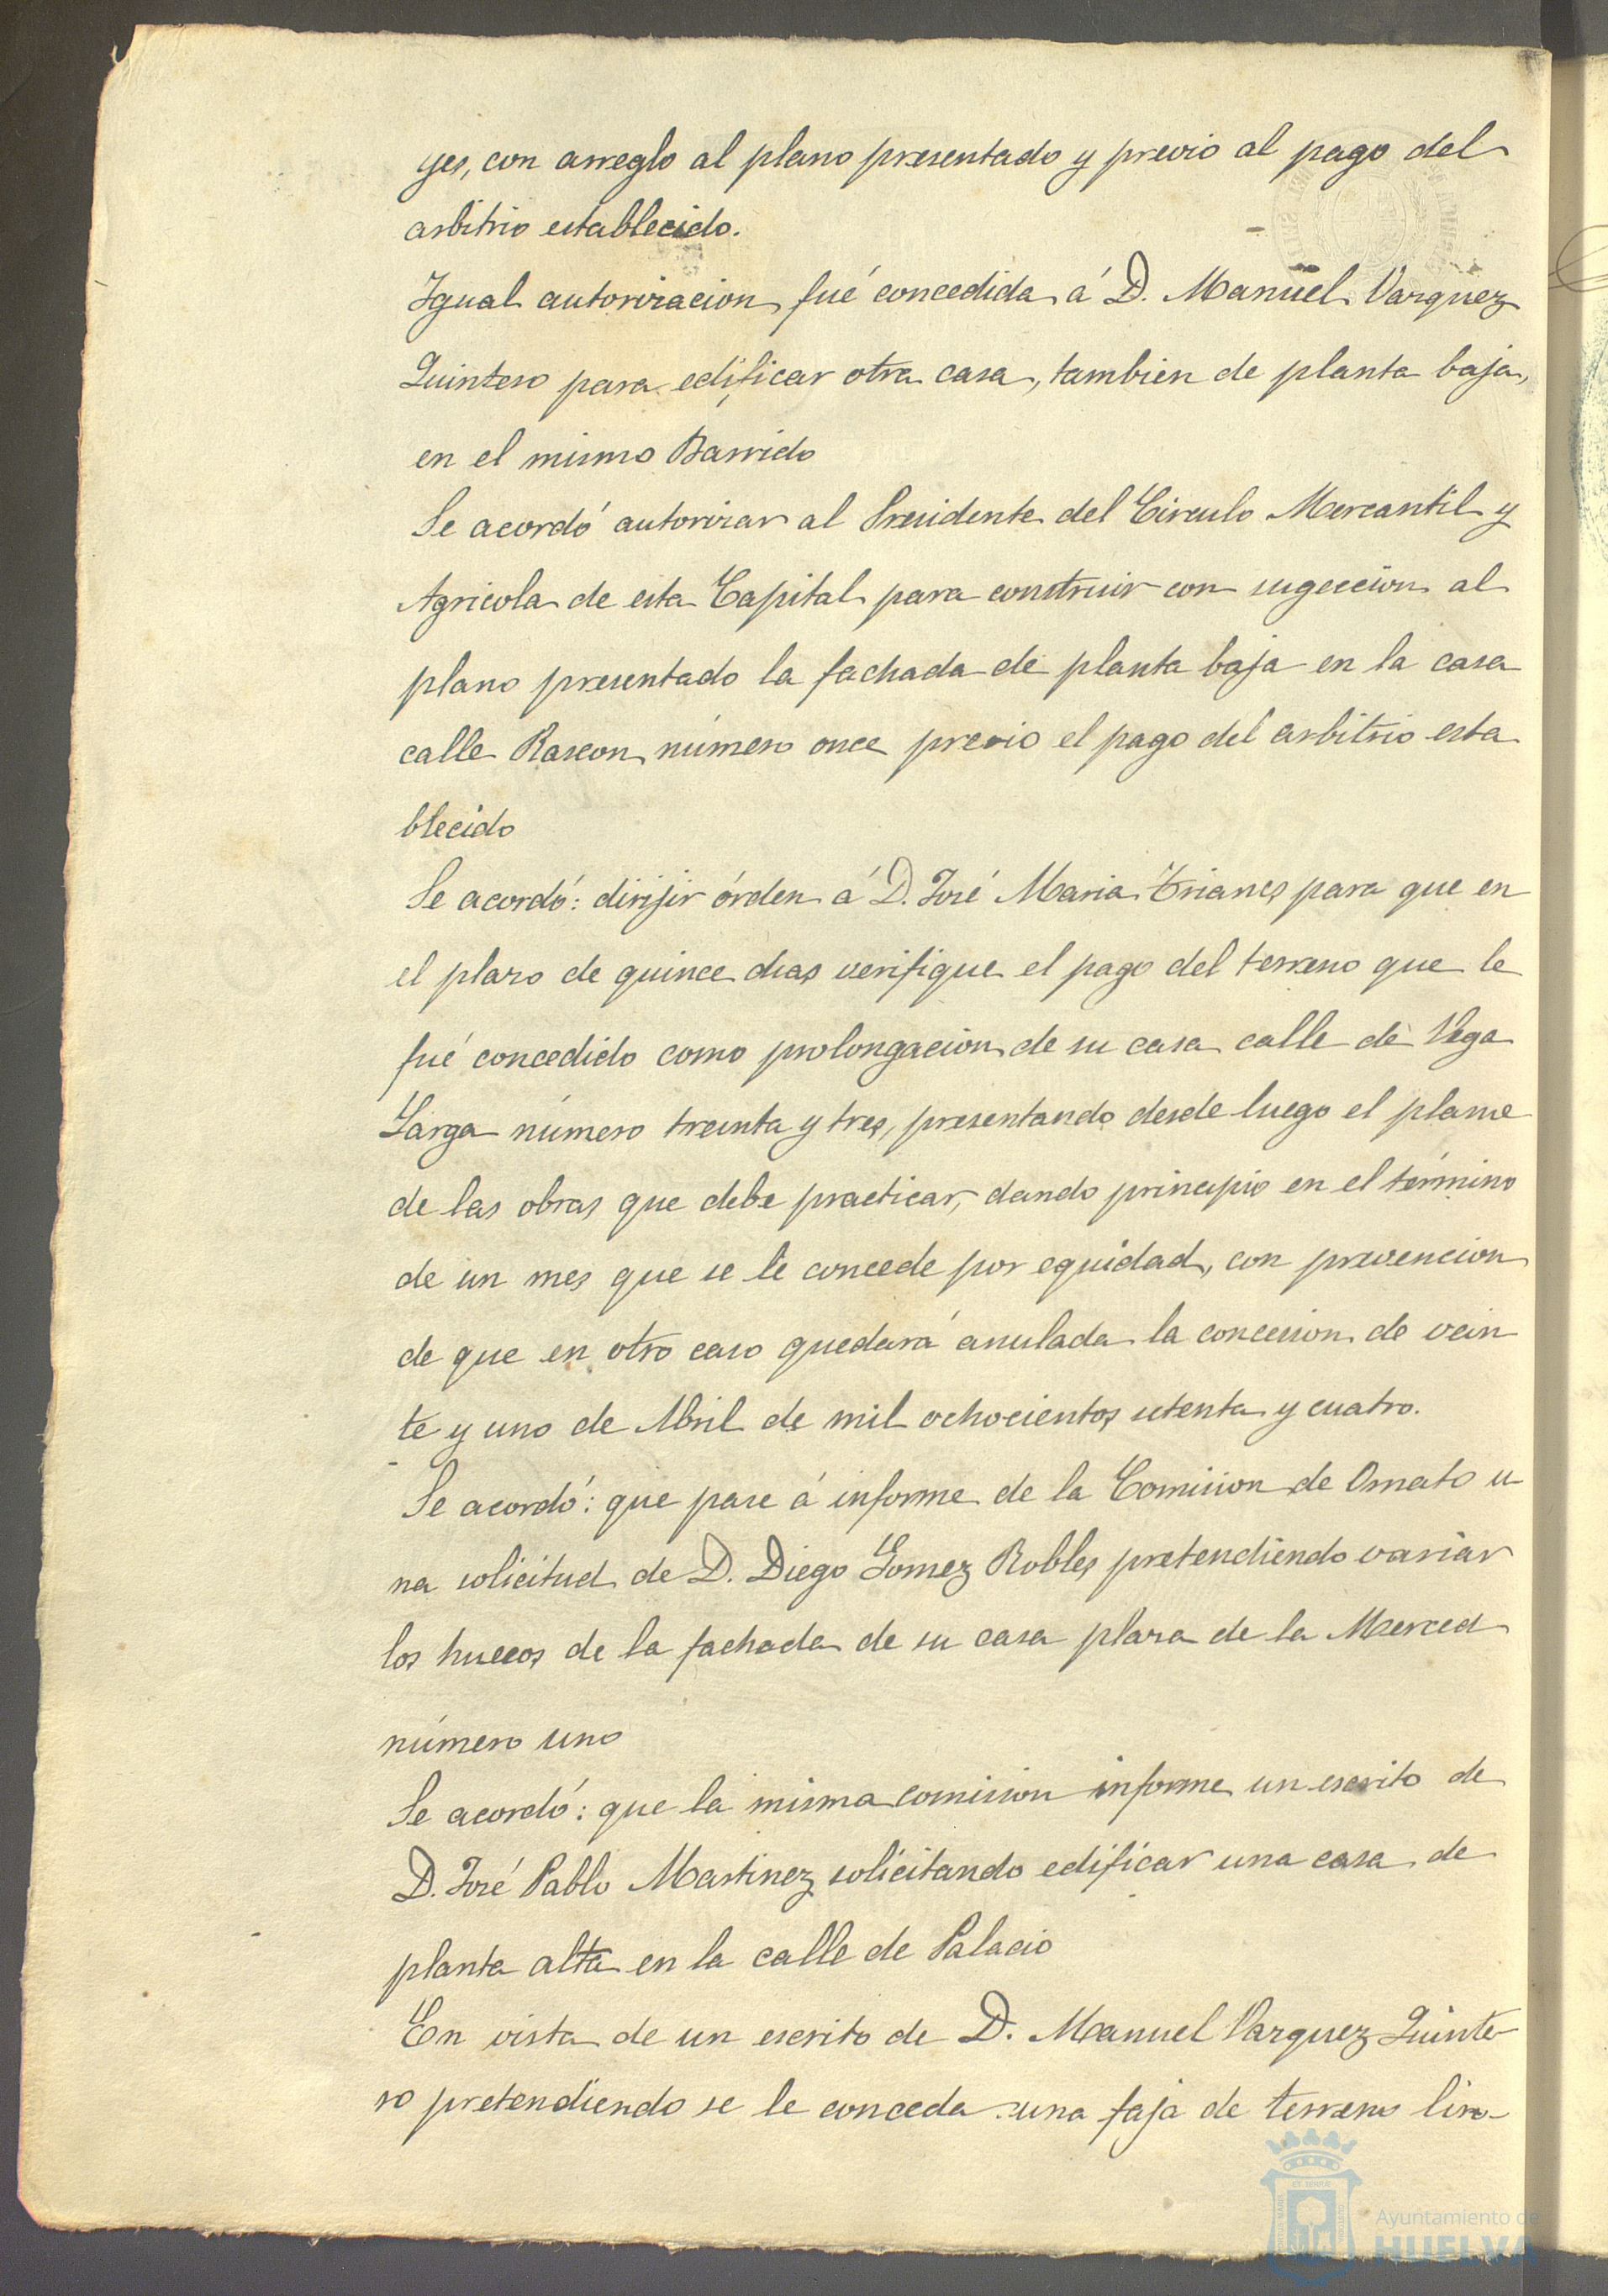 yes, con arreglo al plano presentado y previo al pago del
arbitrio establecido.
Igual autorizacion fué concedida á D. Manuel Vazquez
Quintero para edificar otra casa, tambien de planta baja,
en el mismo Barrido
Se acordó autorizar al Presidente del Círculo Mercantil y
Agricola de esta Capital para construir con sugeccion al
plano presentado la fachada de planta baja en la casa
calle Rascon número once previo el pago del arbitrio esta
blecido
Se acordó: dirijir órden á D. José Maria Trianes para que en
el plazo de quince dias verifique el pago del terreno que le
fué concedido como prolongacion de su casa calle de Vega
Larga número treinta y tres, presentando desde luego el plano
de las obras que debe practicar, dando principio en el término
de un mes que se le concede por equidad, con prevencion
de que en otro caso quedará anulada la concesion de vein
te y uno de Abril de mil ochocientos setenta y cuatro.
Se acordó: que pase á informe de la Comision de Ornato u
na solicitud de D. Diego Gomez Robles pretendiendo variar
los huecos de la fachada de su casa plaza de la Merced
número uno
Se acordó: que la misma comision informe un escrito de
D. José Pablo Martinez solicitando edificar una casa de
planta alta en la calle de Palacio
En vista de un escrito de D. Manuel Vazquez Quinte-
ro pretendiendo se le conceda una faja de terreno lin-
Ayuntamiento de
HUELVA